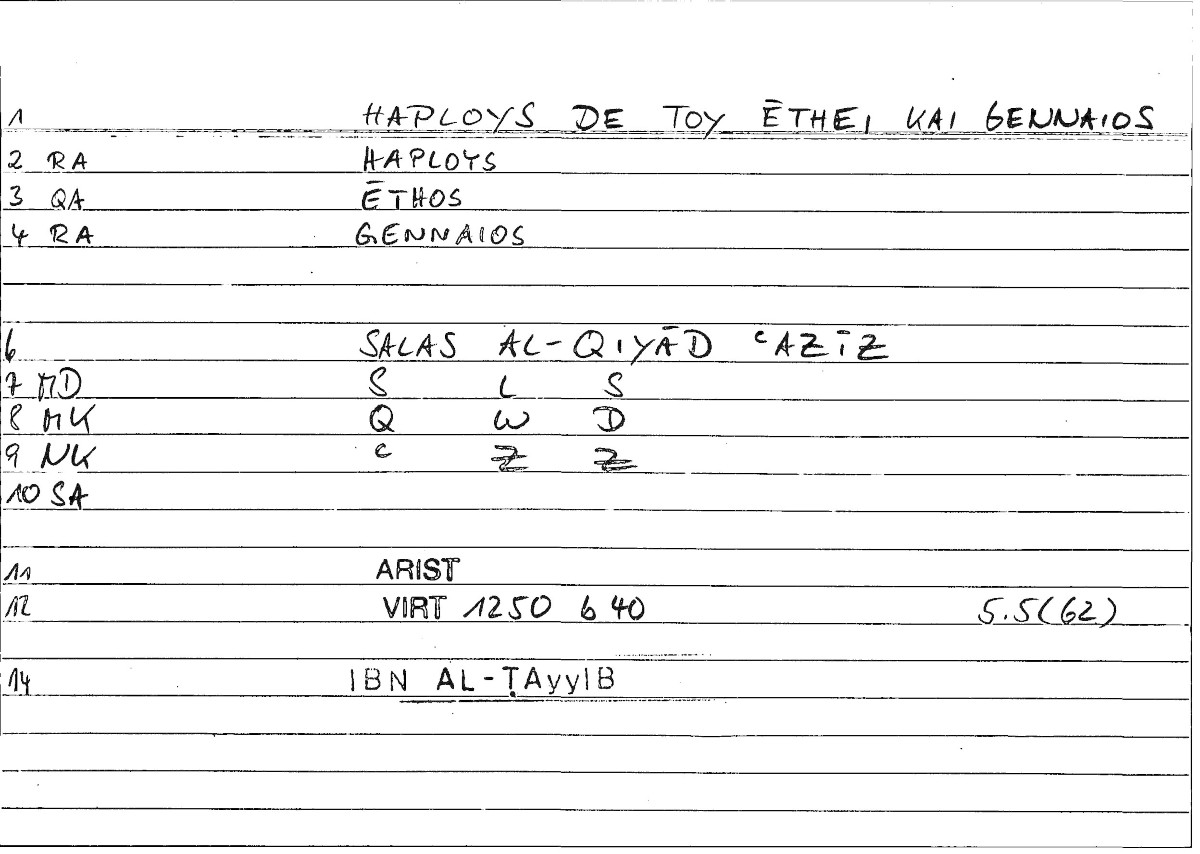 1 HAPLOYS DE TOY ĒTHEI KAI GENNAIOS
2 RA HAPLOYS
3 QA ĒTHOS
4 RA GENNAIOS
6 SALAS AL-QIYĀD ᶜAZĪZ
7 MD S L S
8 MK Q W D
9 NK ᶜ Z Z
10 SA
11 ARIST
12 VIRT 1250 b 40 5.5(62)
14 IBN AL-ṬAyyIB